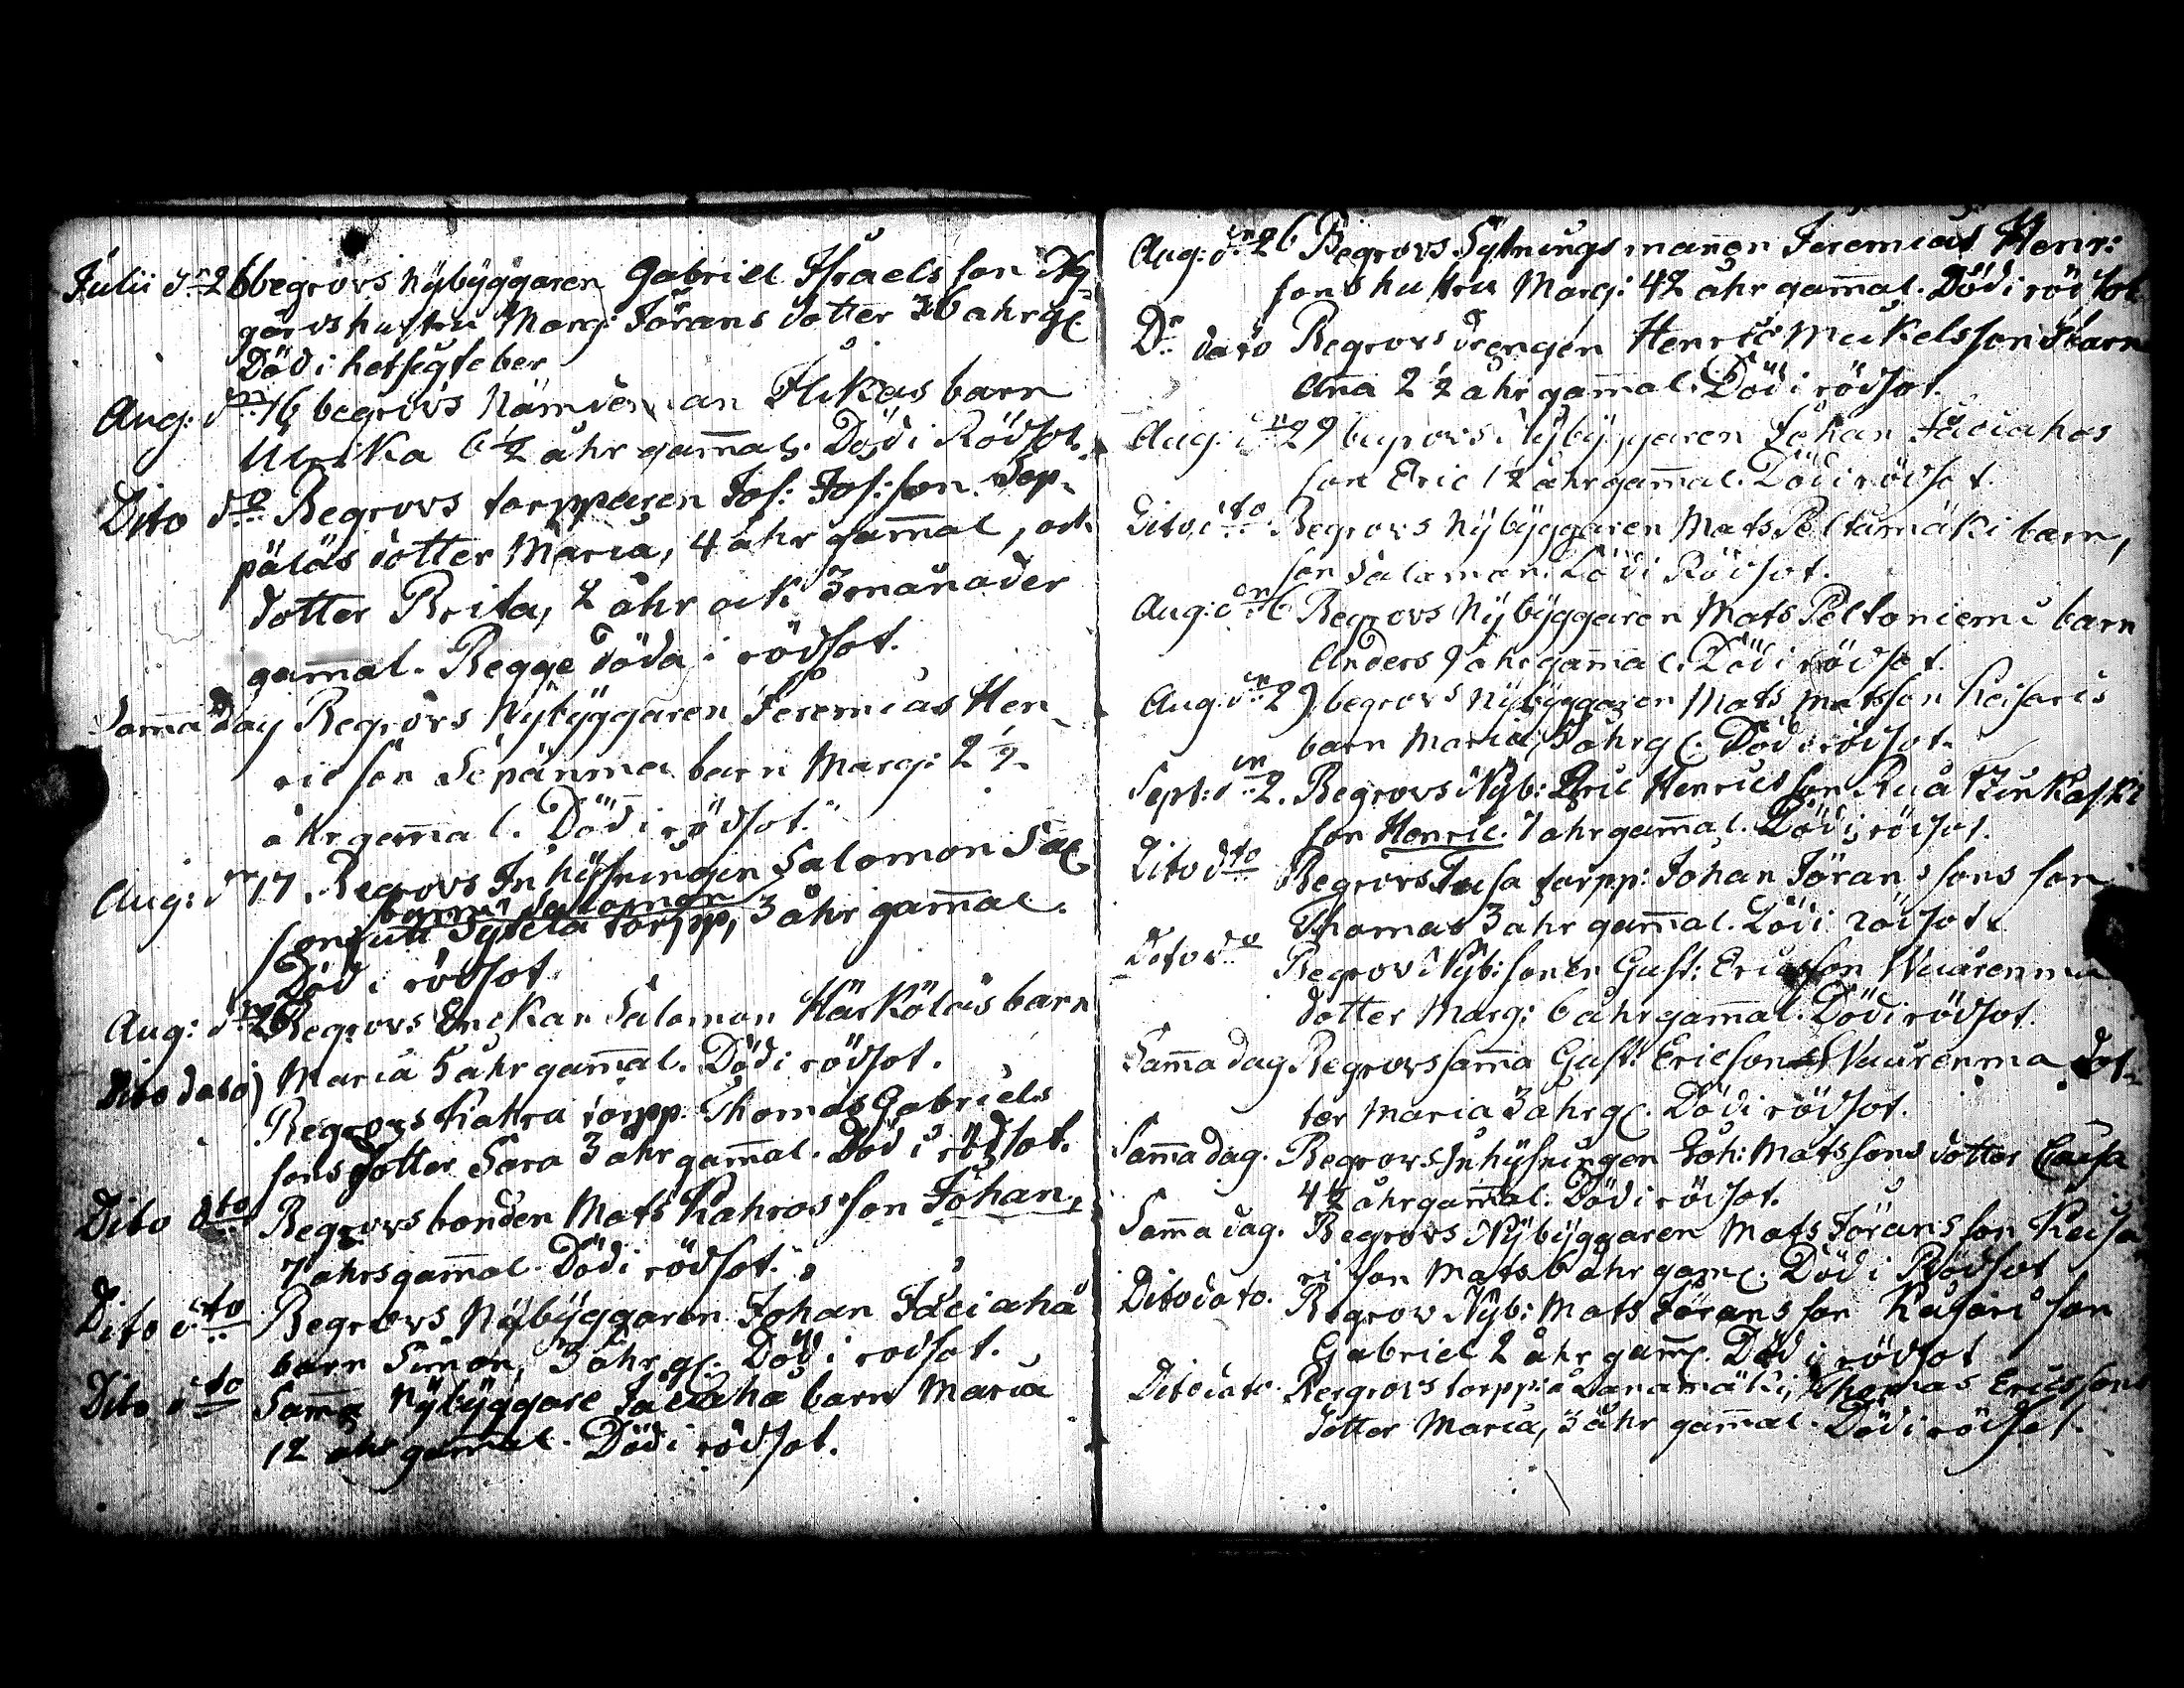 Julii d:n 26 begrovs Nÿbÿggaren Gabriel Israels son Nÿ
gårds hustru Marg: Jörans dotter 36 åhr gl.
Död i hetsig feber
Aug: d:n 16 begrovs Nämdeman Ilkas barn
Ulrika 6 ½ åhr gam̄al. Död i Rödsot.
Dito d:o Begrovs torpparen Jos: Jos: son Sep-
päläs dotter Maria, 4 åhr gam̄al, och
dotter Brita, 2 åhr och 3 månader
gam̄al. Begge döda i rödsot.
Sam̄a dag Begrovs Nÿbÿggaren Jeremias Hen-
ric son Sepänma barn Marg: 2 ½
åhr gam̄al. Död i rödsot.
Aug: d:n 17. Begrovs Inhÿsningen Salomon Sal
barn Salomon
son ifrån torpp, 3 åhr gam̄al.
Död i rödsot
Aug: d:n 26 Begrovs Enckan Salomon Härköläs barn
Maria 5 åhr gam̄al. Död i rödsot.
Dito dato Begrovs Kahra torpp: Thomas Gabriels
sons dotter Sara 3 åhr gam̄al. Död i rödsot.
Dito d:to Begrovs bonden Mats Kahras son Johan,
7 åhrs gam̄al. Död i rödsot.
Dito d:to Begrovs Nÿbÿggaren Johan Jäciaho
barn Simon, 3 åhr gl. Död i rödsot.
Dito d:to Sam̄a Nÿbÿggare Jäciaho barn Maria
12 åhr gam̄al. Död i rödsot.
Aug: d:n 26 Begrovs Sÿtningsman̄en Jeremias Henr:
sons hustru Marg: 42 åhr gam̄al. Död i rödsot
D:n dato Begrovs drengen Henric Mickelsson barn
An̄a 2 ½ åhr gam̄al. Död i rödsot.
Aug: d:n 29 begrovs Nÿbÿggaren Johan Jäciahos
son Eric 1 ½ åhr gam̄al. Död i rödsot.
Dito d:to Begrovs Nÿbÿggaren Mats Peltamäki barn,
son Salamon. Död i Rödsot.
Aug: d:n Begrovs Nÿbÿggaren Mats Peltoniemi barn
Anders 9 åhr gam̄al. Död i rödsot.
Aug: d:n 29 begrovs Nÿbÿggaren Mats Matsson Keisaris
barn Maria, 5 åhr gl. Död i rödsot.
Sept: d:n 2. Begrovs Nÿb: Eric Henricsson
son Henric. 7 åhr gam̄al. Död i rödsot.
Dito d:to Begrovs torpp: Johan Jöranssons son
Thomas 3 åhr gam̄al. Död i rödsot.
Dito d:o Begrovs Nÿb: sonen Gust: Ericsson Wuarenma
dotter Marg: 6 åhr gam̄al. Död i rödsot.
Sam̄a dag Begrovs sam̄a Gust: Ericsons Wuarenma dot-
ter Maria 3 åhr gl. Död i rödsot.
Sam̄a dag. Begrovs Inhÿsningen Joh: Matssons dotter Caisa
4 ½ åhr gam̄al. Död i rödsot.
Sam̄a dag. Begrovs Nÿbÿggaren Mats Jöransson Keisa
ri son Mats 6 åhr gaml. Död i Rödsot
Dito dato. Begrov Nÿb: Mats Jöransson son
Gabriel 2 åhr gam̄l. Död i rödsot
Dito dato. Bergrovs torpp: Thomas Ericssons
dotter Maria, 3 åhr gam̄al. Död i rödsot.